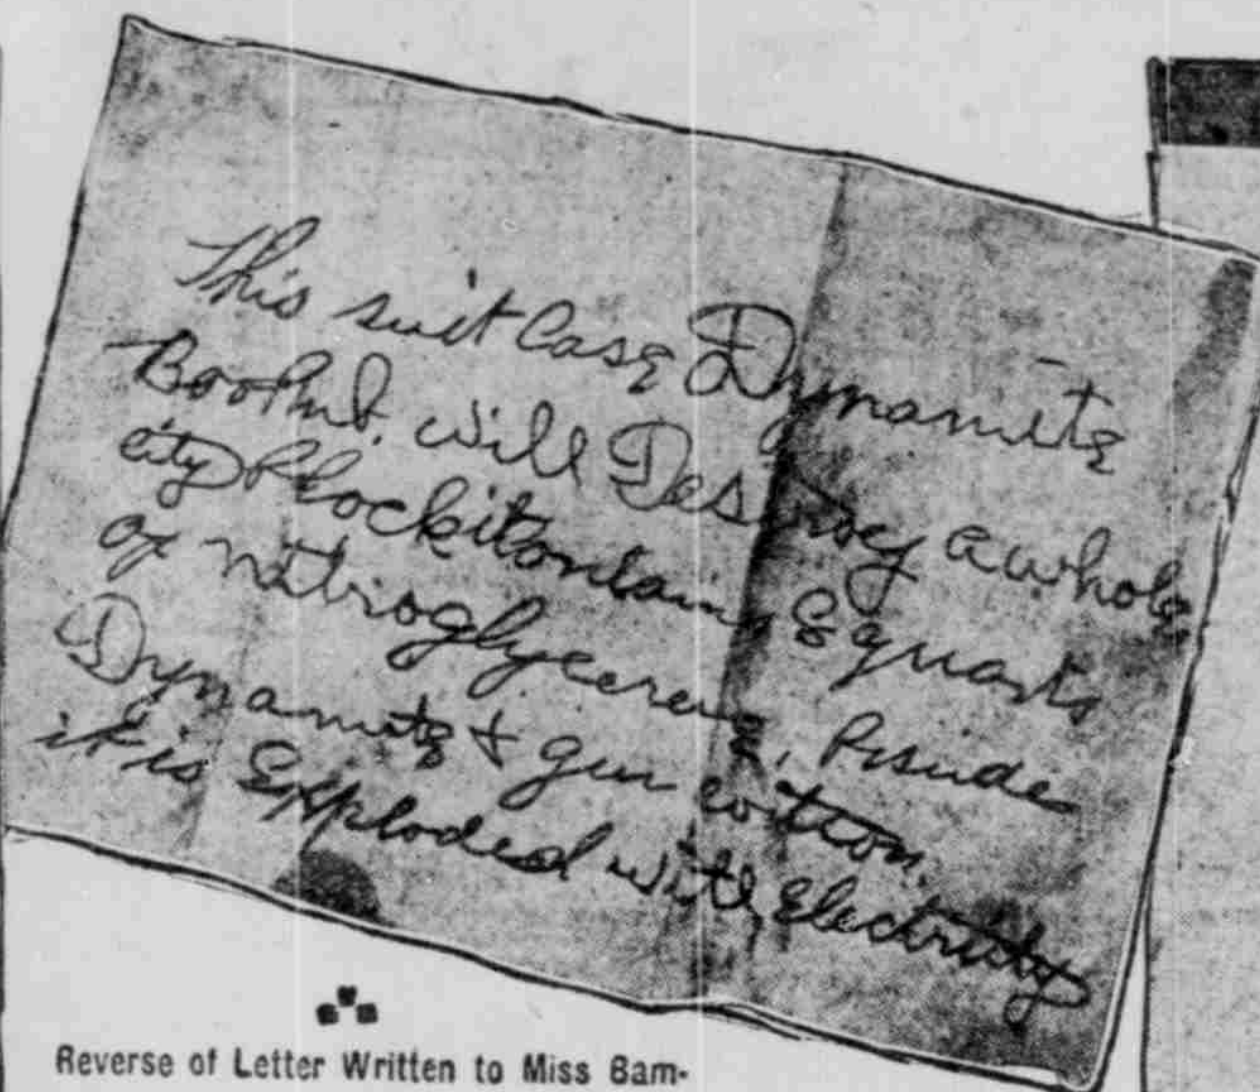 This suit Case Dynamite
Boohmb. will Destroy a whole
city block it Contains 8 quarts
of nitrioglycerene, Beside
Dynamite & gun cotton.
it is Exploded with Electricity
Reverse of Letter Written to Miss Bam-